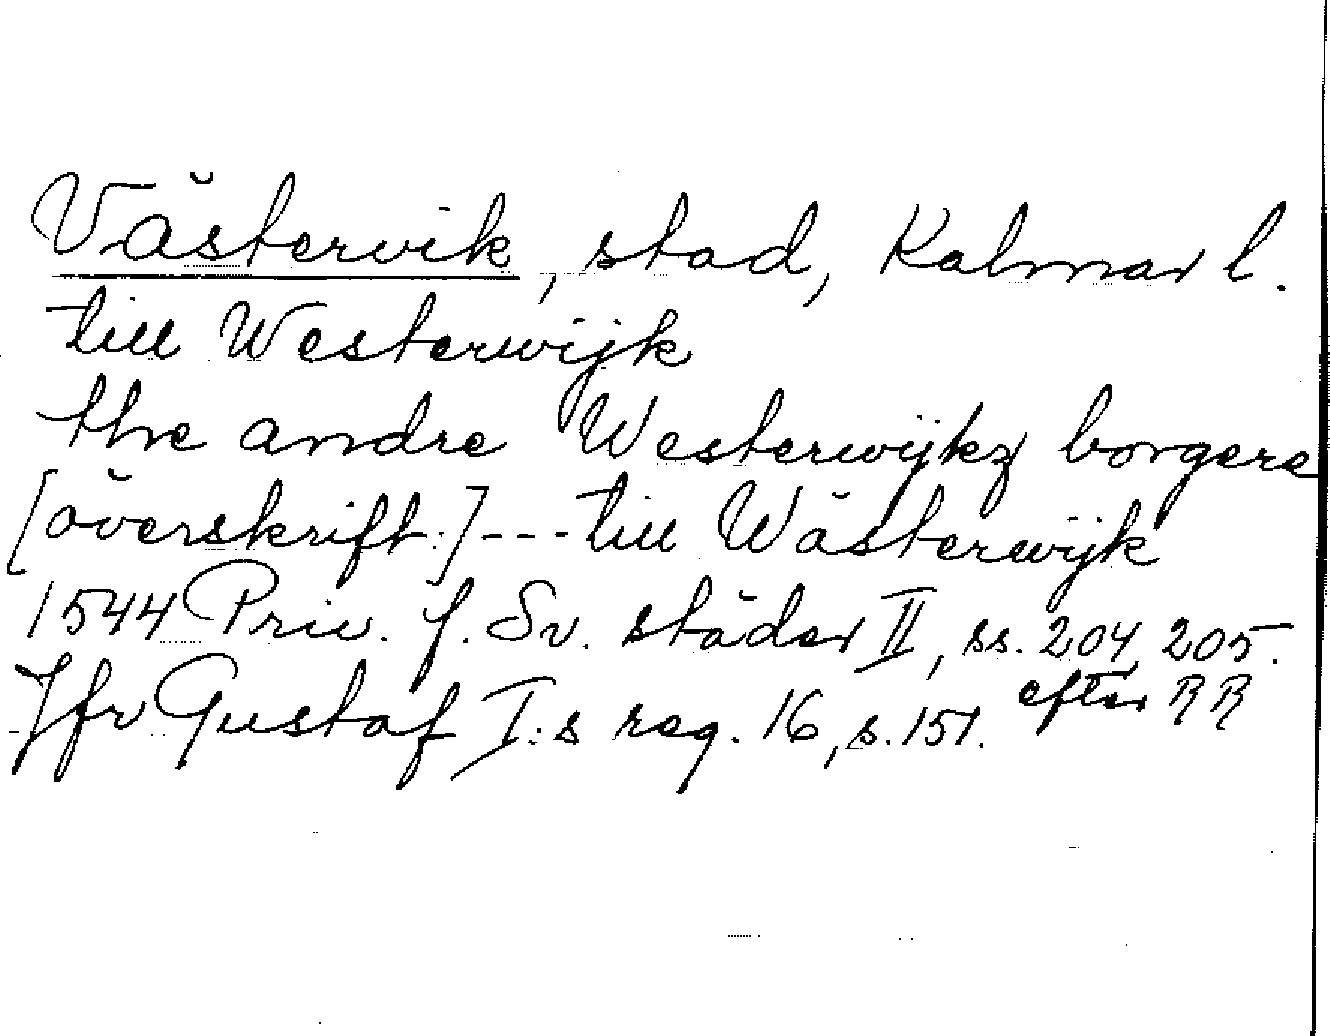 Västervik, stad, Kalmar l.
till Westerwijk
the andre Westerwijkz borgere
[överskrift:]---till Wästerwijk
1544 Priv. f. Sv. städer II, ss. 204, 205.
efter RR
Jfr Gustaf I:s reg. 16, s. 151.